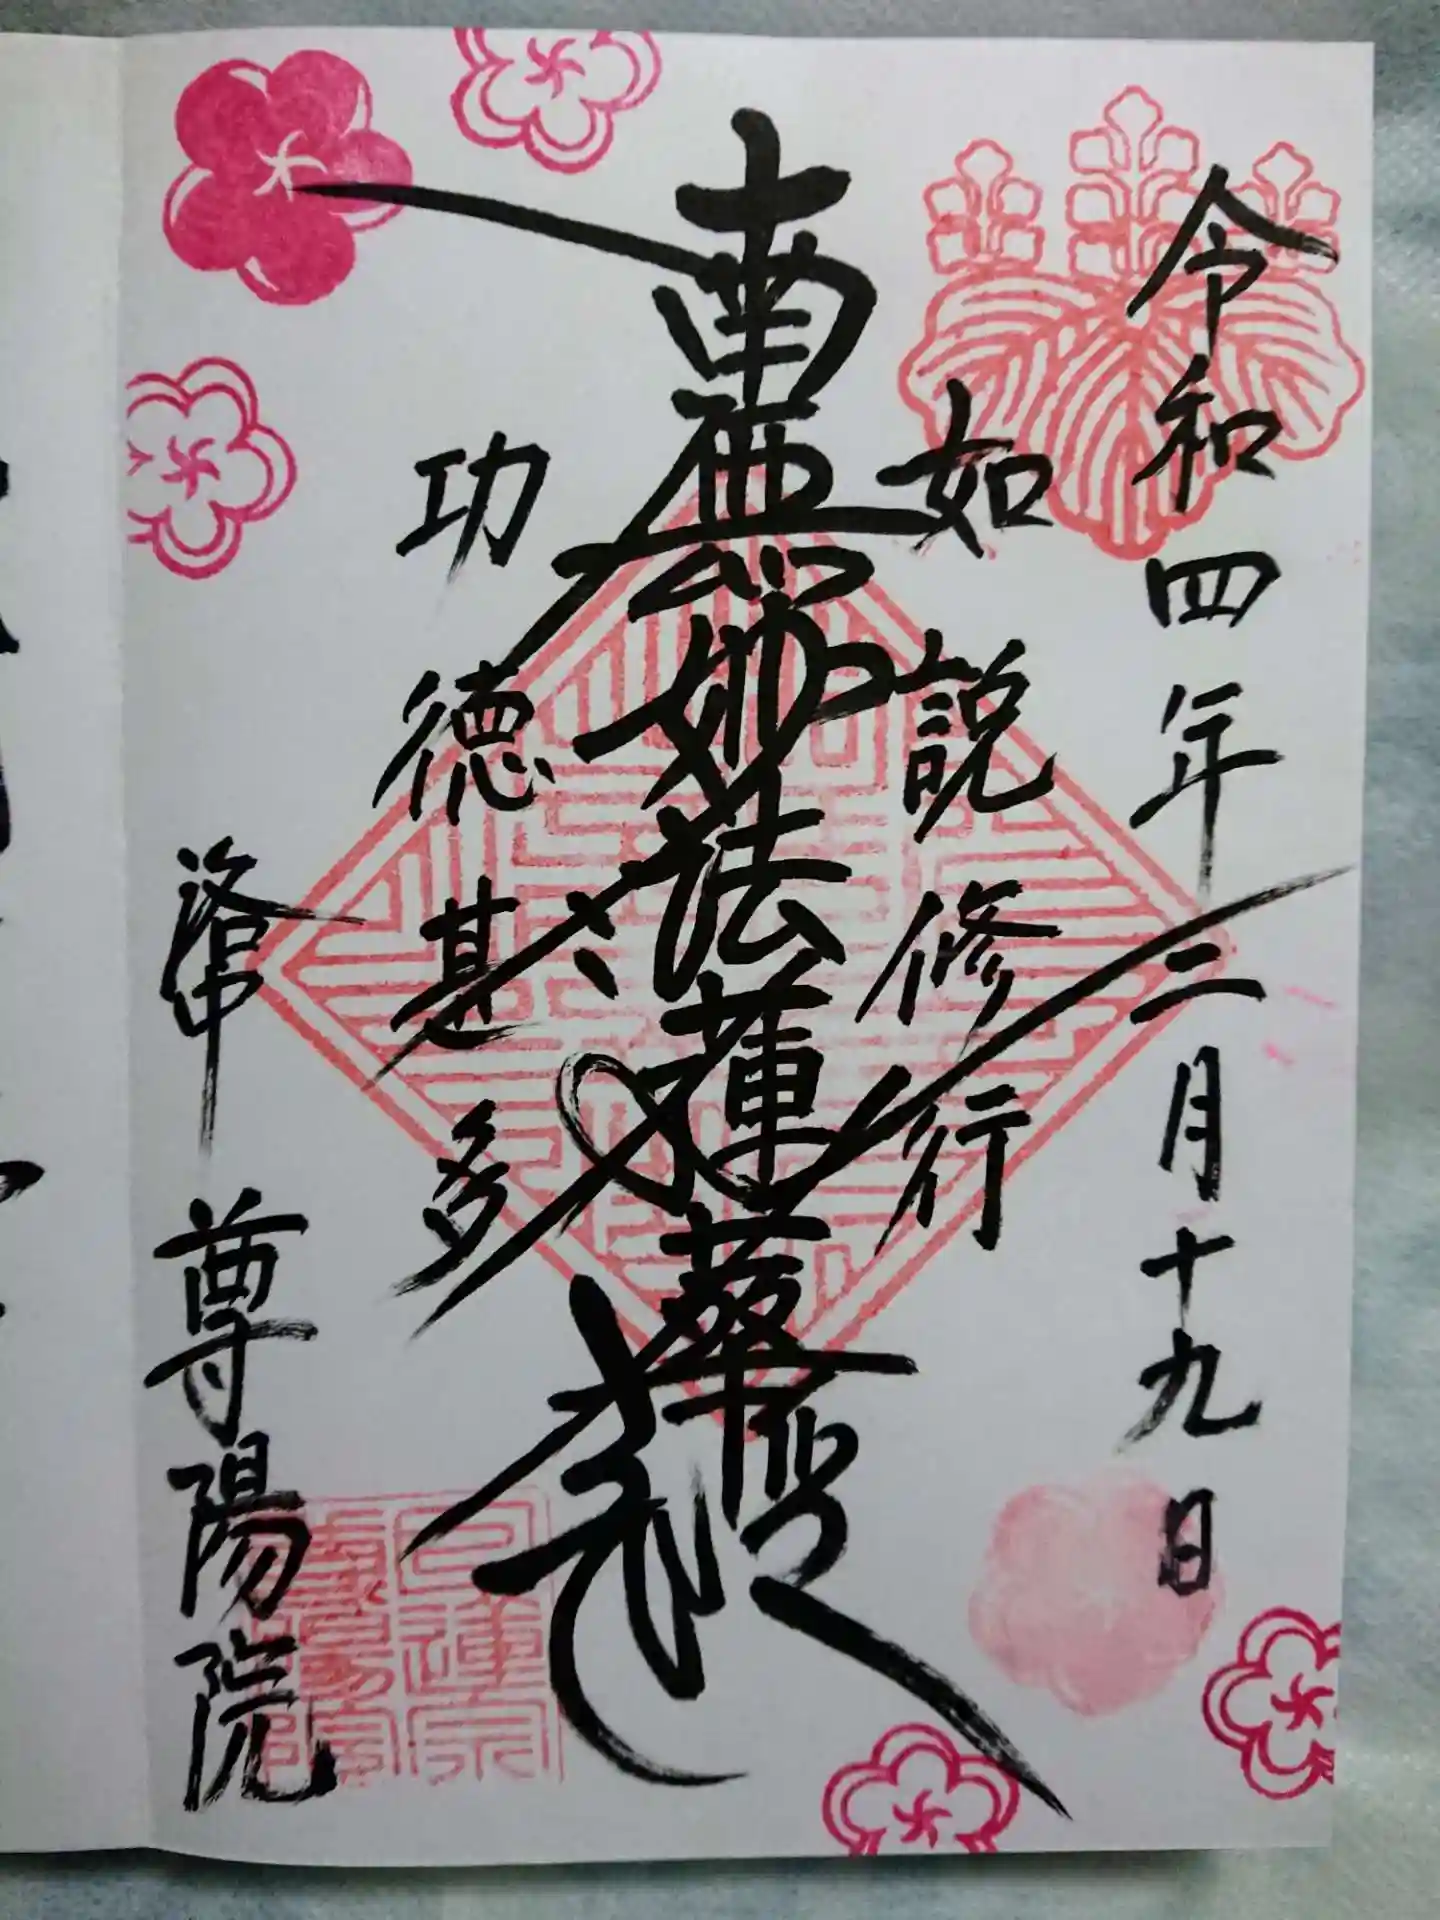 令和四年三月十九日
如説修行
南無妙法蓮華経
功徳甚多
洛中 尊陽院
日蓮宗